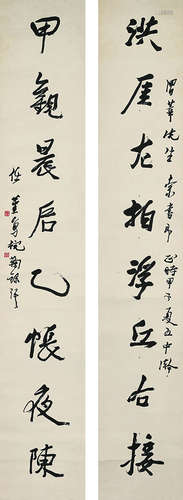 洪厓左拍浮丘右接
華先生索書即正時甲子夏五中澣
甲觀晨启乙帳夜陳